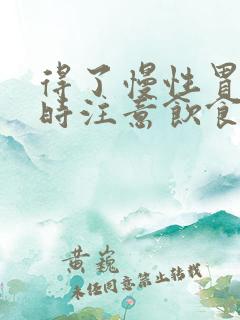 得了慢性胃
时注意飲食
黄巍
未经同意禁止转载